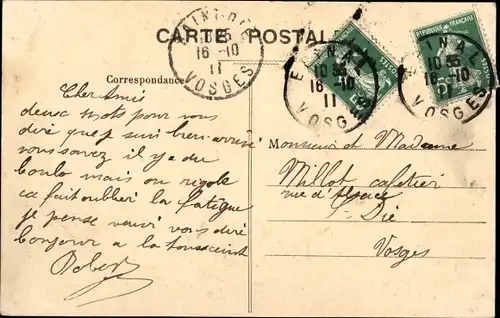 CARTE POSTALE
SAINT-DIÉ
16-10
11
VOSGES
EPINAL
10 35
16-10
11
VOSGES
REPUBLIQUE FRANÇAISE
POSTES
EPINAL
10 35
16-10
11
VOSGES
Correspondance
Cher Amis
deux mots pour vous
dire que j suis bien arrivé
vous savez il y a du
boulo mais on rigole
ca fait oublier la fatigue
je pense venir vous dire
bonjour a la toussaint
Robert
Monsieur et Madame
Millot cafetier
rue d'Alsace
St Dié
Vosges